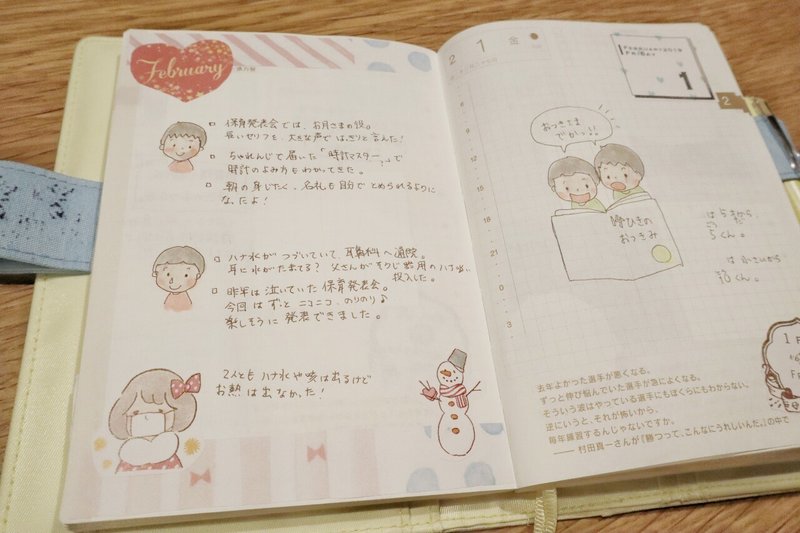 February
保育発表会では、お月さまの役。
長いゼリフを、大きな声ではっきりと言えた!
ちゃれんじで届いた「時計マスター」で
時計のよみ方もわかってきた。
朝の身じたく、名札も自分でとめられるように
なったよ!
ハナ水がつづいていて、耳鼻科へ通院。
耳に水がたまってる?父さんが
投入した。
昨年は泣いていた保育発表会。
今回はずっとニコニコ、のりのり♪
楽しそうに発表できました。
2人ともハナ水や咳は出るけど
お熱は出なかった!
2 1 金
FEBRUARY 2019
FRIDAY
1
2
おつきさま
でかっ!!
おつきみ
6
9
12
15
18
21
0
3
くん。
くん。
去年よかった選手が悪くなる。
ずっと伸び悩んでいた選手が急によくなる。
そういう波はやっている選手にもぼくらにもわからない。
逆にいうと、それが怖いから、
毎年練習するんじゃないですか。
──村田真一さんが『勝つって、こんなにうれしいんだ。』の中で